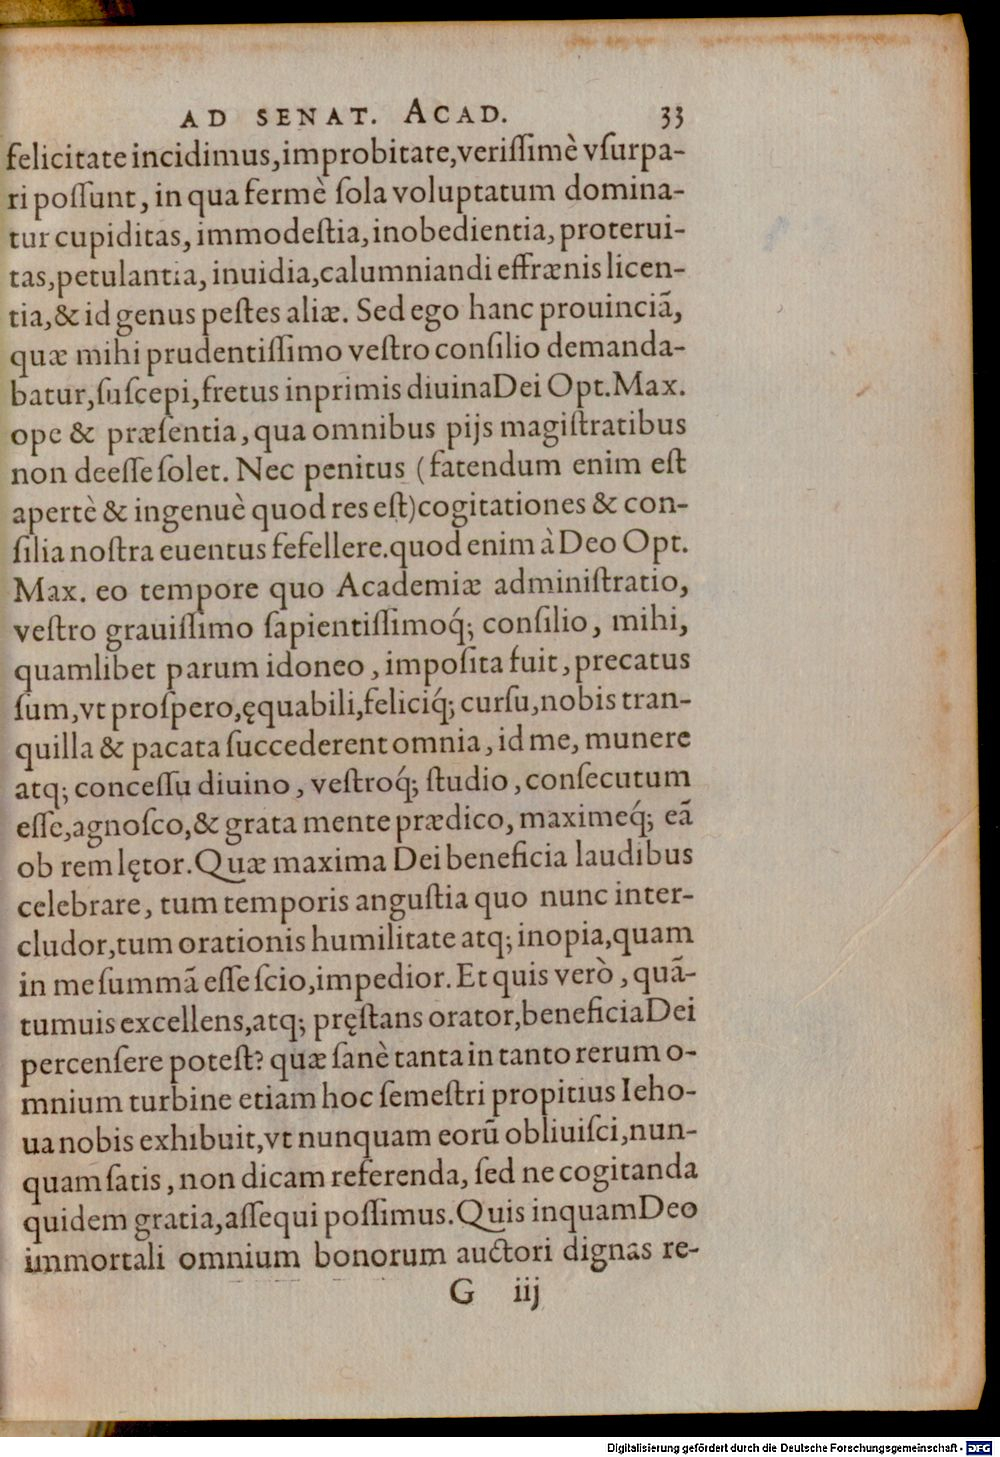 AD SENAT. ACAD. 33
felicitate incidimus, improbitate, verissimè vsurpa-
ri possunt, in qua fermè sola voluptatum domina-
tur cupiditas, immodestia, inobedientia, proterui-
tas, petulantia, inuidia, calumniandi effrænis licen-
tia, & id genus pestes aliæ. Sed ego hanc prouinciã,
quæ mihi prudentissimo vestro consilio demanda-
batur, suscepi, fretus inprimis diuina Dei Opt. Max.
ope & præsentia, qua omnibus pijs magistratibus
non deesse solet. Nec penitus (fatendum enim est
apertè & ingenuè quod res est) cogitationes & con-
silia nostra euentus fefellere. quod enim à Deo Opt.
Max. eo tempore quo Academiæ administratio,
vestro grauissimo sapientissimoq́; consilio, mihi,
quamlibet parum idoneo, imposita fuit, precatus
sum, vt prospero, ęquabili, feliciq́; cursu, nobis tran-
quilla & pacata succederent omnia, id me, munere
atq; concessu diuino, vestroq́; studio, consecutum
esse, agnosco, & grata mente prædico, maximeq́; eã
ob rem lętor. Quæ maxima Dei beneficia laudibus
celebrare, tum temporis angustia quo nunc inter-
cludor, tum orationis humilitate atq; inopia, quam
in me summã esse scio, impedior. Et quis verò, quã-
tumuis excellens, atq; pręstans orator, beneficia Dei
percensere potest? quæ sanè tanta in tanto rerum o-
mnium turbine etiam hoc semestri propitius Ieho-
ua nobis exhibuit, vt nunquam eorũ obliuisci, nun-
quam satis, non dicam referenda, sed ne cogitanda
quidem gratia, assequi possimus. Quis inquam Deo
immortali omnium bonorum auctori dignas re-
G iij
Digitalisierung gefördert durch die Deutsche Forschungsgemeinschaft - DFG